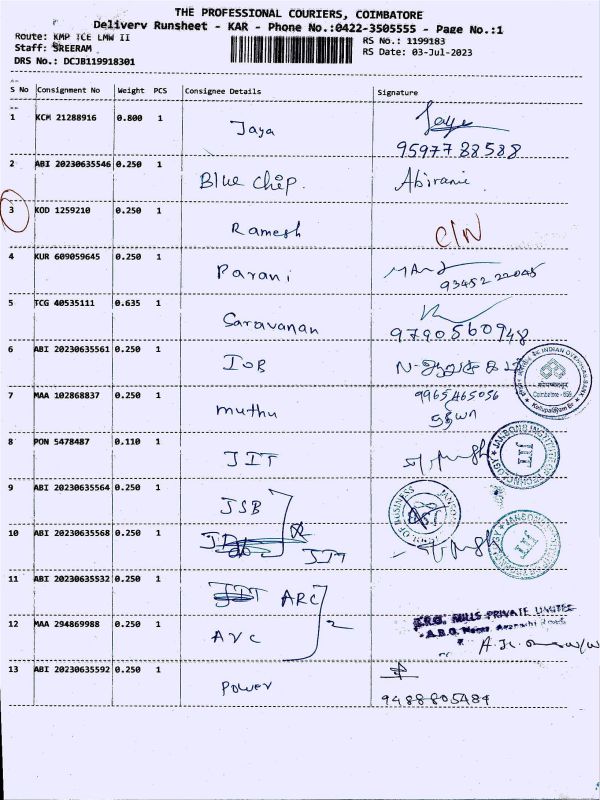 THE PROFESSIONAL COURIERS, COIMBATORE
Delivery Runsheet - KAR - Phone No.:0422-3505555 - Page No.:1
Route: KMP TCE LMW II
RS No.: 1199183
Staff: SREERAM
RS Date: 03-Jul-2023
DRS No.: DCJB119918301
S No Consignment No Weight PCS Consignee Details Signature
1 KCM 21288916 0.800 1 Jaya Jaya
9597788588
2 ABI 20230635546 0.250 1 Blue Chip. Abirami
3 KOD 1259210 0.250 1 Ramesh C/N
4 KUR 609059645 0.250 1 Parani
9345222045
5 TCG 40535111 0.635 1 Saravanan
9790560948
6 ABI 20230635561 0.250 1 IOB
INDIAN OVERSEAS BANK
Coimbatore
7 MAA 102868837 0.250 1 muthu 9965465056
8 PON 5478487 0.110 1 JIT
JANSONS INSTITUTE OF TECHNOLOGY
JIT
9 ABI 20230635564 0.250 1 JSB
OF BUSINESS
10 ABI 20230635568 0.250 1 JIT
JIT
11 ABI 20230635532 0.250 1 JIT ARC
12 MAA 294869988 0.250 1 AVC 2
MILLS PRIVATE LIMITED
13 ABI 20230635592 0.250 1 Power
9488805484